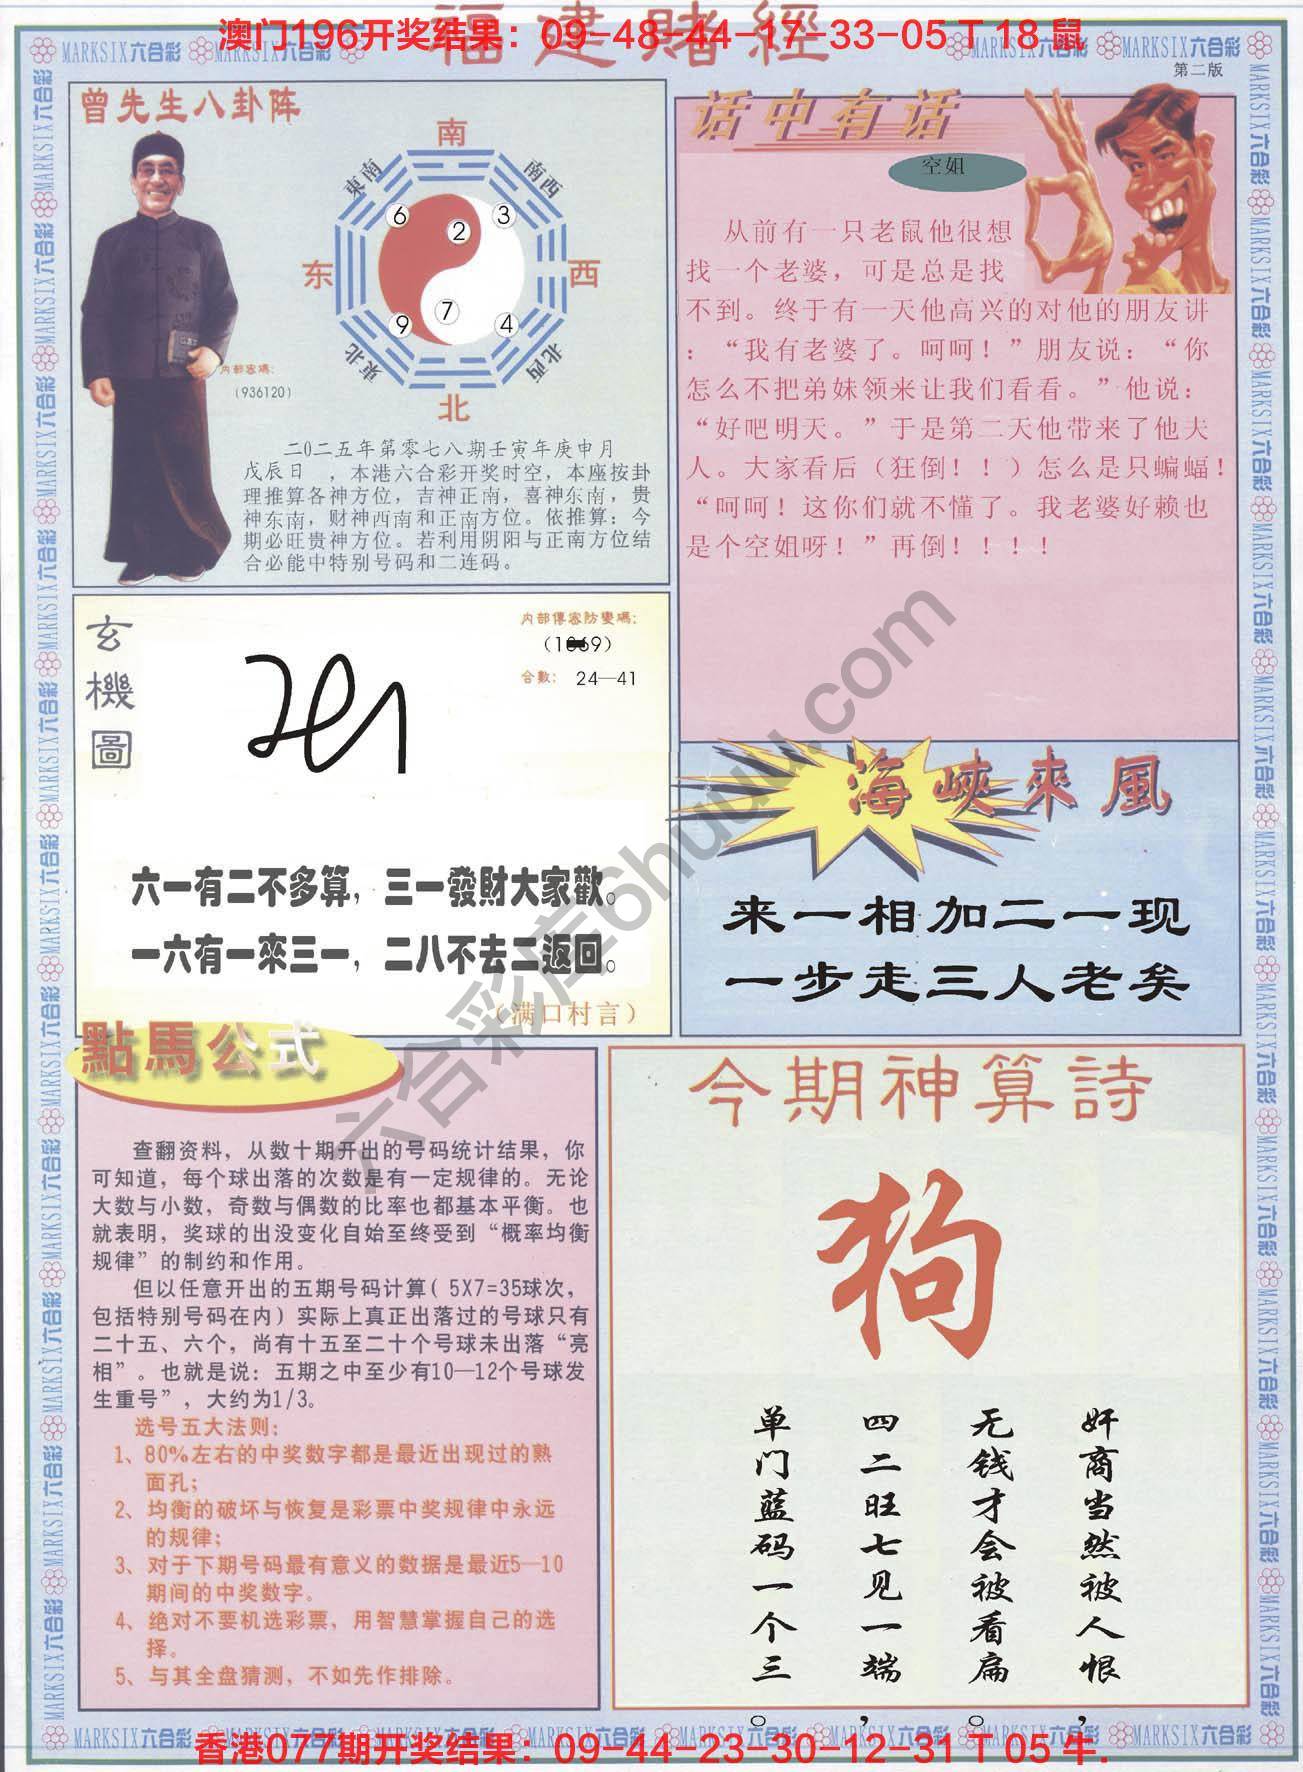 福建賭經
澳门196开奖结果：09-48-44-17-33-05 T 18 鼠
MARKSIX六合彩
第二版
曾先生八卦阵
南
東南
南西
6
2
3
东
西
9
7
4
東北
北西
北
内部密碼:
(936120)
二0二五年第零七八期壬寅年庚申月
戊辰日 ，本港六合彩开奖时空，本座按卦
理推算各神方位，吉神正南，喜神东南，贵
神东南，财神西南和正南方位。依推算：今
期必旺贵神方位。若利用阴阳与正南方位结
合必能中特别号码和二连码。
话中有话
空姐
从前有一只老鼠他很想
找一个老婆，可是总是找
不到。终于有一天他高兴的对他的朋友讲
：“我有老婆了。呵呵！”朋友说：“你
怎么不把弟妹领来让我们看看。”他说：
“好吧明天。”于是第二天他带来了他夫
人。大家看后（狂倒！！）怎么是只蝙蝠！
“呵呵！这你们就不懂了。我老婆好赖也
是个空姐呀！”再倒！！！！
玄機圖
内部傳密防變碼:
合數: 24—41
六一有二不多算，三一發財大家歡。
一六有一來三一，二八不去二返回。
（满口村言）
海峽來風
来一相加二一现
一步走三人老矣
點馬公式
查翻资料，从数十期开出的号码统计结果，你
可知道，每个球出落的次数是有一定规律的。无论
大数与小数，奇数与偶数的比率也都基本平衡。也
就表明，奖球的出没变化自始至终受到“概率均衡
规律”的制约和作用。
但以任意开出的五期号码计算( 5X7=35球次，
包括特别号码在内）实际上真正出落过的号球只有
二十五、六个，尚有十五至二十个号球未出落“亮
相”。也就是说：五期之中至少有10—12个号球发
生重号”，大约为1/3。
选号五大法则：
1、80%左右的中奖数字都是最近出现过的熟
面孔；
2、均衡的破坏与恢复是彩票中奖规律中永远
的规律；
3、对于下期号码最有意义的数据是最近5—10
期间的中奖数字。
4、绝对不要机选彩票，用智慧掌握自己的选
择。
5、与其全盘猜测，不如先作排除。
今期神算詩
狗
奸商当然被人恨，
无钱才会被看扁。
四二旺七见一端，
单门蓝码一个三。
六合彩库6huuu.com
香港077期开奖结果：09-44-23-30-12-31 T 05 牛.